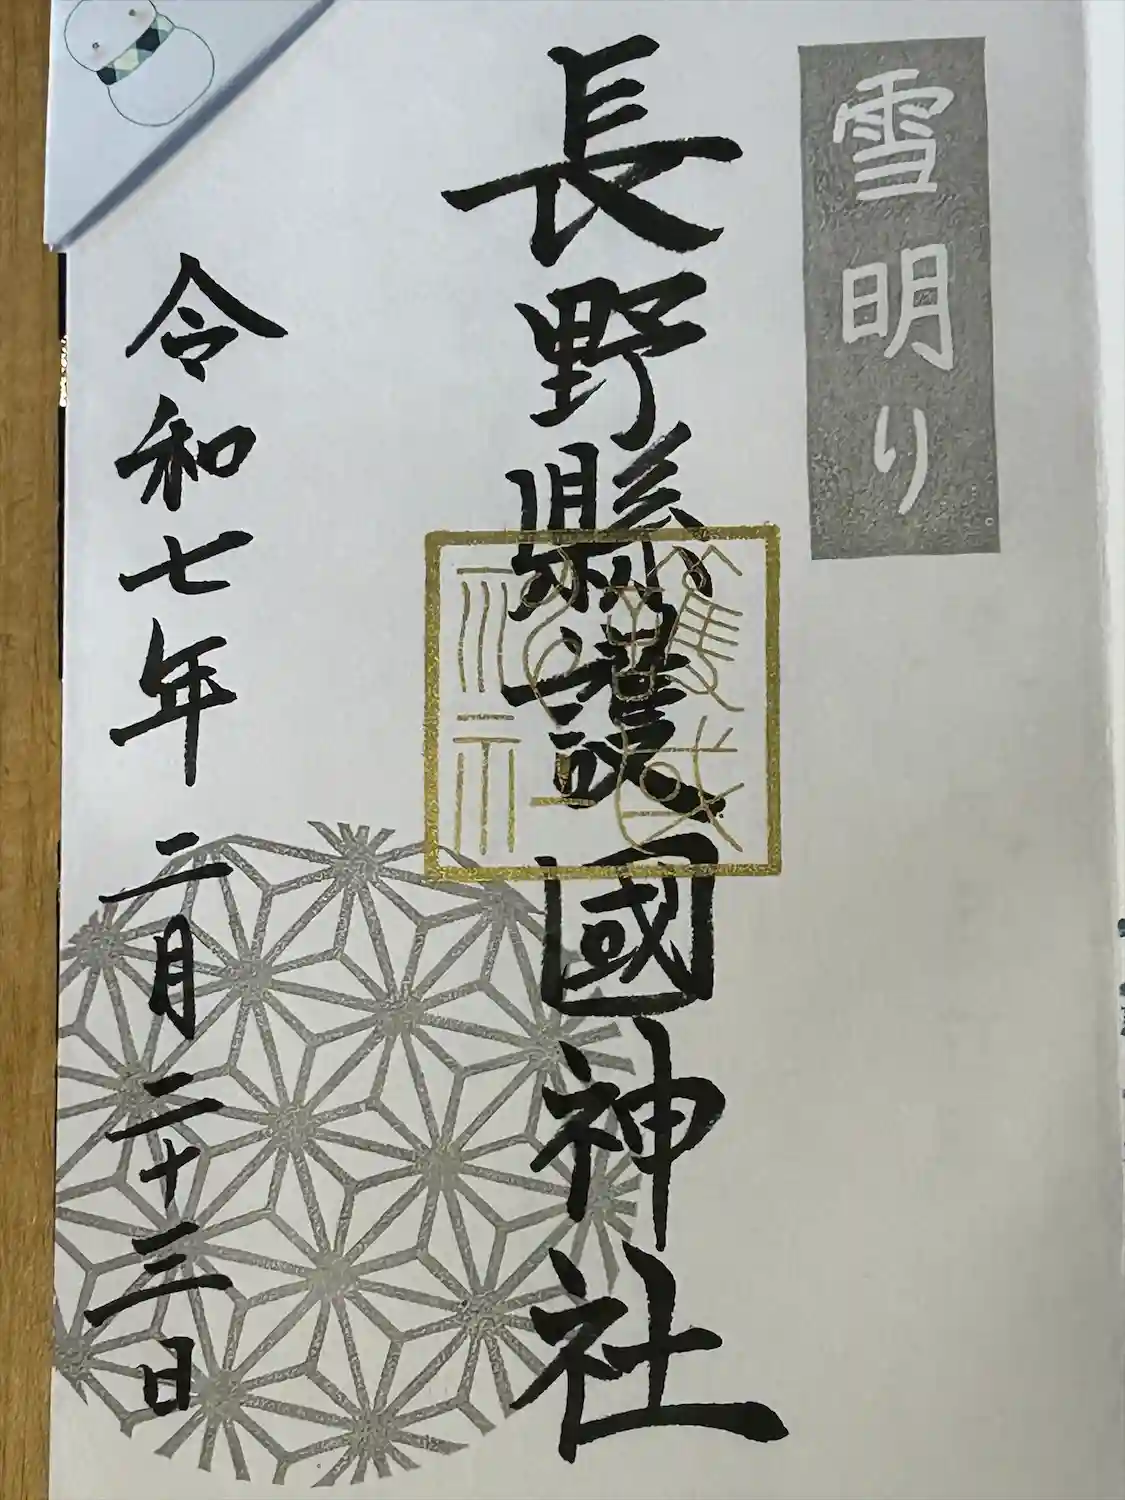 雪明り
長野縣護國神社
令和七年 二月 二十三日